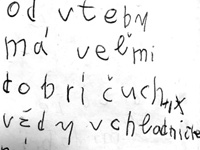 od vteby
má veľmi
dobrí čuch
vědy v chladničke